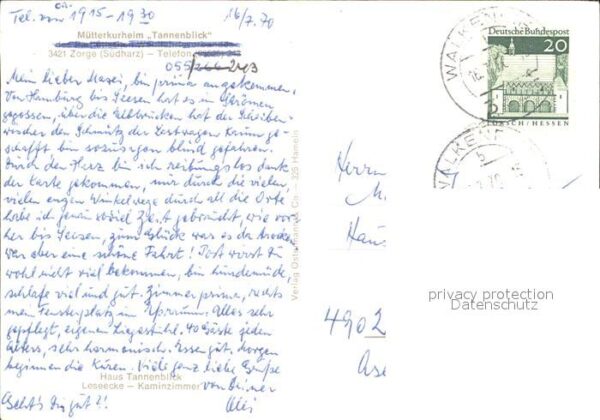 Tel. von 1915 - 1930
16/7.70
Mütterkurheim „Tannenblick“
3421 Zorge (Südharz) — Telefon
055/266 203
Mein lieber bin prima angekommen,
Von Hamburg bis Seesen hat es in Strömen
gegossen, über die Elbbrücken hat der Scheiben-
wischer den Schmutz der Lastwagen kaum ge-
schafft bin sozusagen blind gefahren.
Durch den Harz bin ich reibungslos dank
der Karte gekommen, nur durch die vielen,
vielen engen Winkelwege durch all die Orte
habe ich genau soviel Zeit gebraucht, wie vor-
her bis Seesen, zum Glück war es da trocken
war aber eine schöne Fahrt! Post wirst Du
wohl nicht viel bekommen, bin hundemüde,
schlafe viel und gut. Zimmer prima,
mein Fensterplatz in Alles sehr
gepflegt, eigenen Liegestuhl. 40 Gäste jeden
Alters, sehr harmonisch. Essen gut. Morgen
beginnen die Kuren. Viele ganz liebe Grüße
Haus Tannenblick
von Deiner
Leseecke — Kaminzimmer
Geht's Dir gut?!
Verlag Ostermann & Co - 325 Hameln
Deutsche Bundespost
20
LORSCH/HESSEN
WALKENR
WALKENR
Herrn
M
Haus
4902
privacy protection
Datenschutz